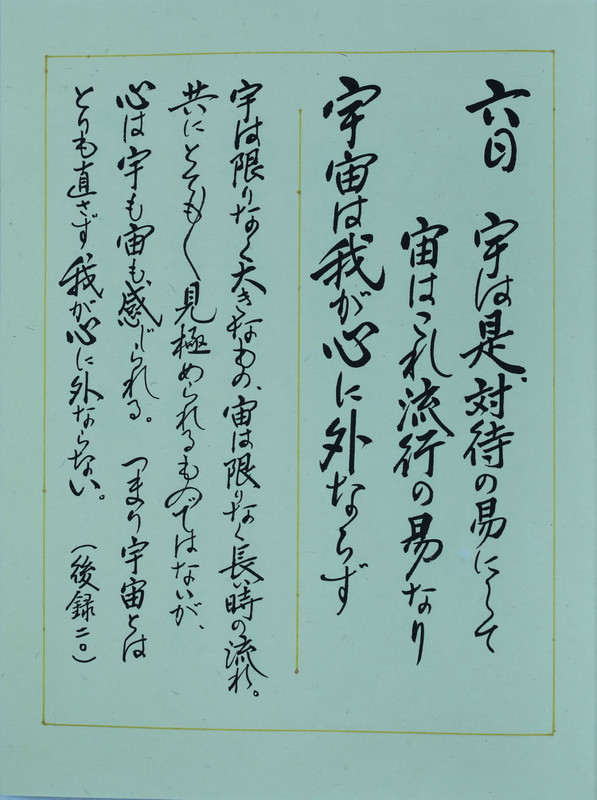 六日 宇は是対待の易にして
宙はこれ流行の易なり
宇宙は我が心に外ならず
宇は限りなく大きなもの、宙は限りなく長い時の流れ。
共にとても〱見極められるものではないが、
心は宇も宙も感じられる。つまり宇宙とは
とりも直さず我が心に外ならない。(後録二〇)